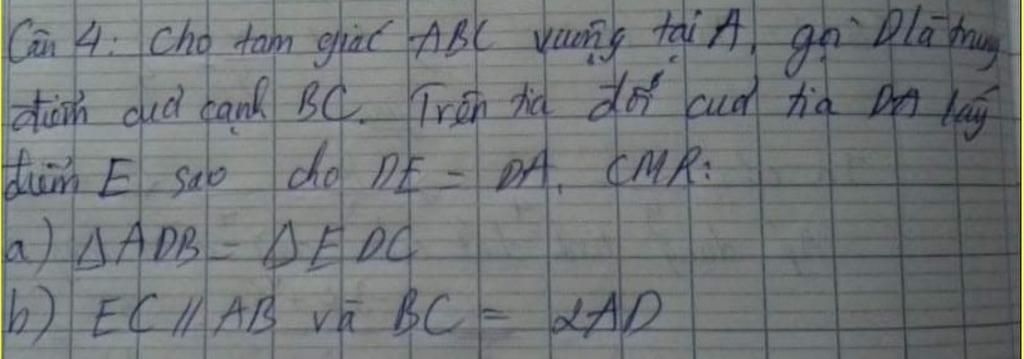 Câu 4: Cho tam giác ABC vuông tại A, gọi D là trung
điểm của cạnh BC. Trên tia đối của tia DA lấy
điểm E sao cho DE = DA. CMR:
a) ΔADB = ΔEDC
b) EC // AB và BC = 2AD